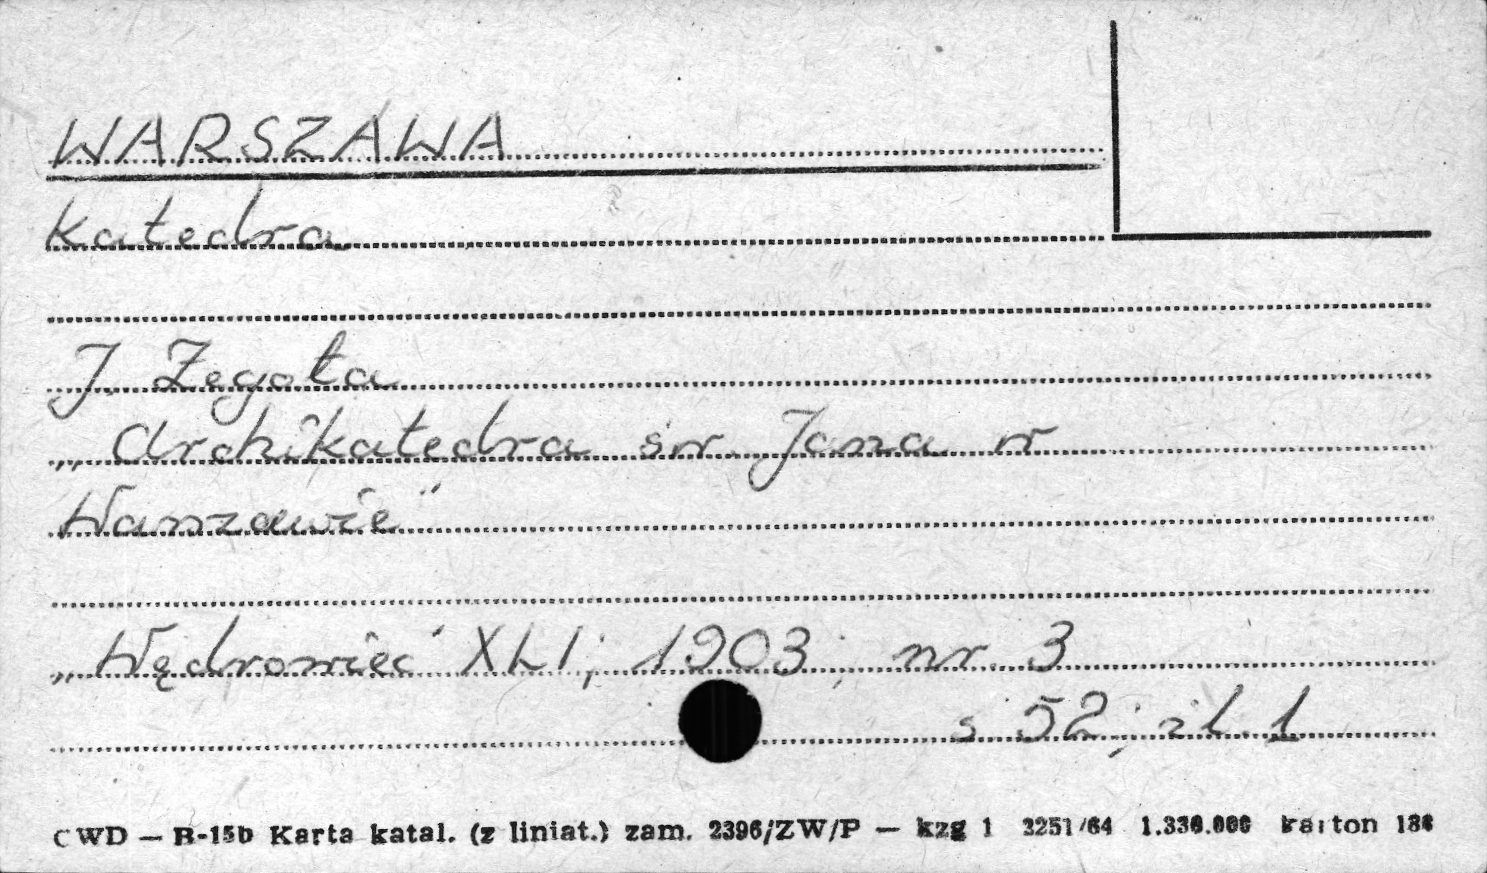 WARSZAWA
Katedra
J. Żegota
„Archikatedra św. Jana w
Warszawie"
„Wędrowiec" XLI; 1903; nr. 3
s. 52; il. 1
CWD — B-15b Karta katal. (z liniat.) zam. 2396/ZW/P — kzg 1 2251/64 1.330.000 karton